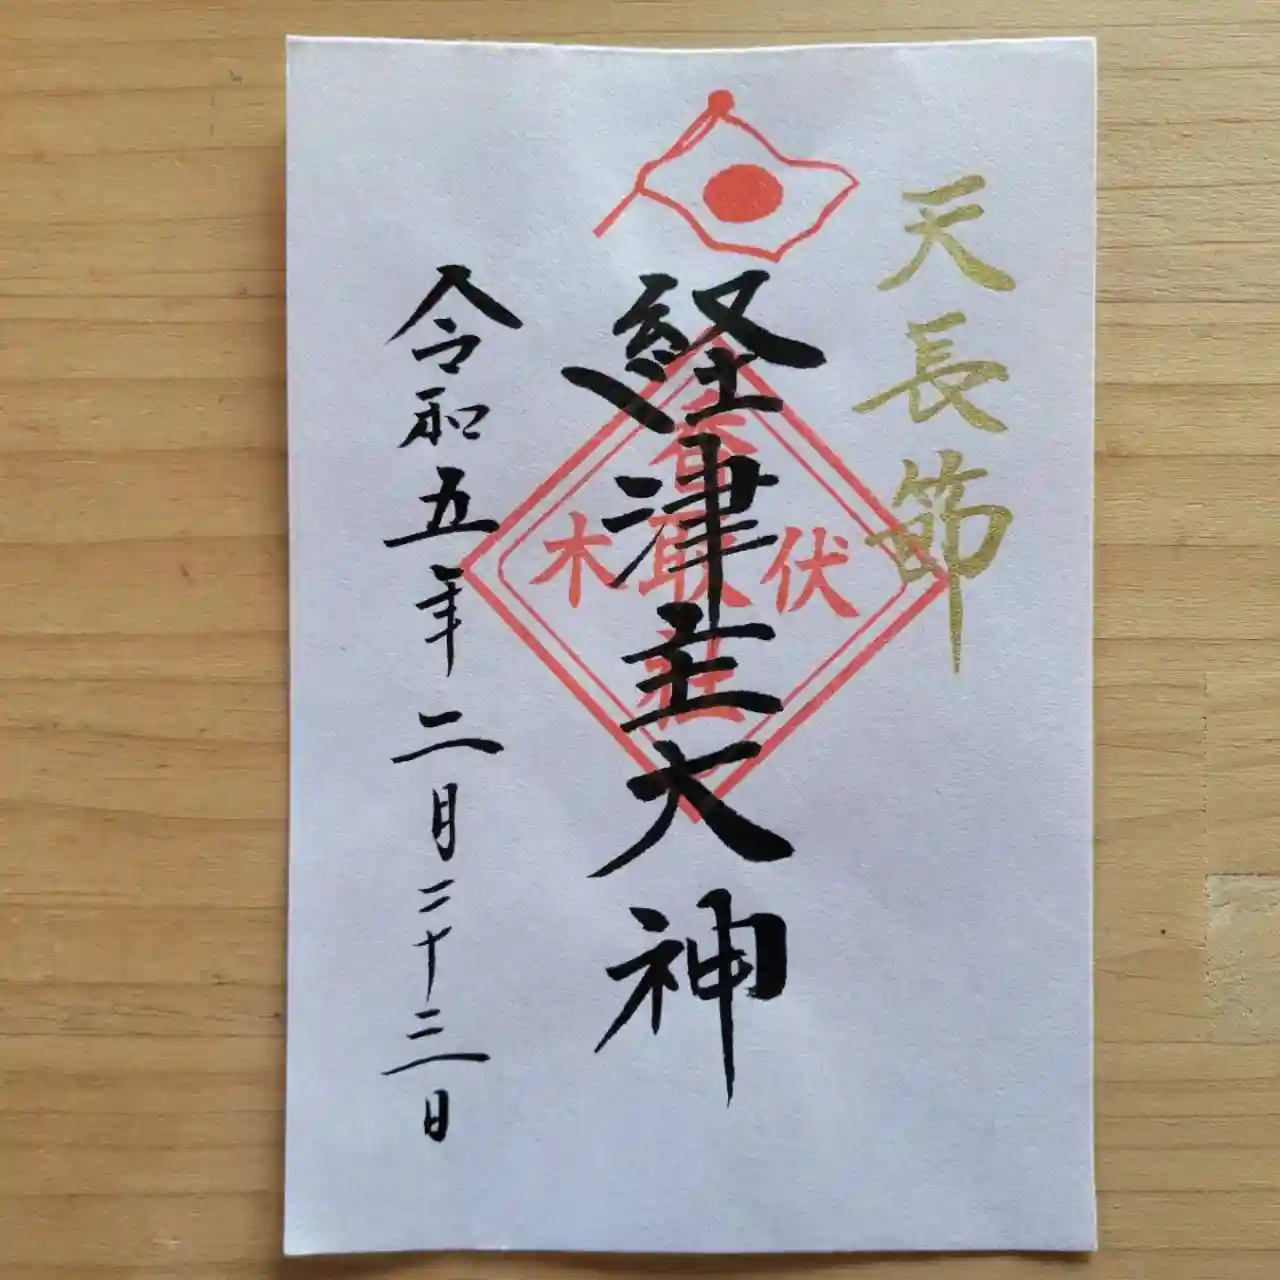 天長節
経津主大神
伏木
香取社
令和五年二月二十三日